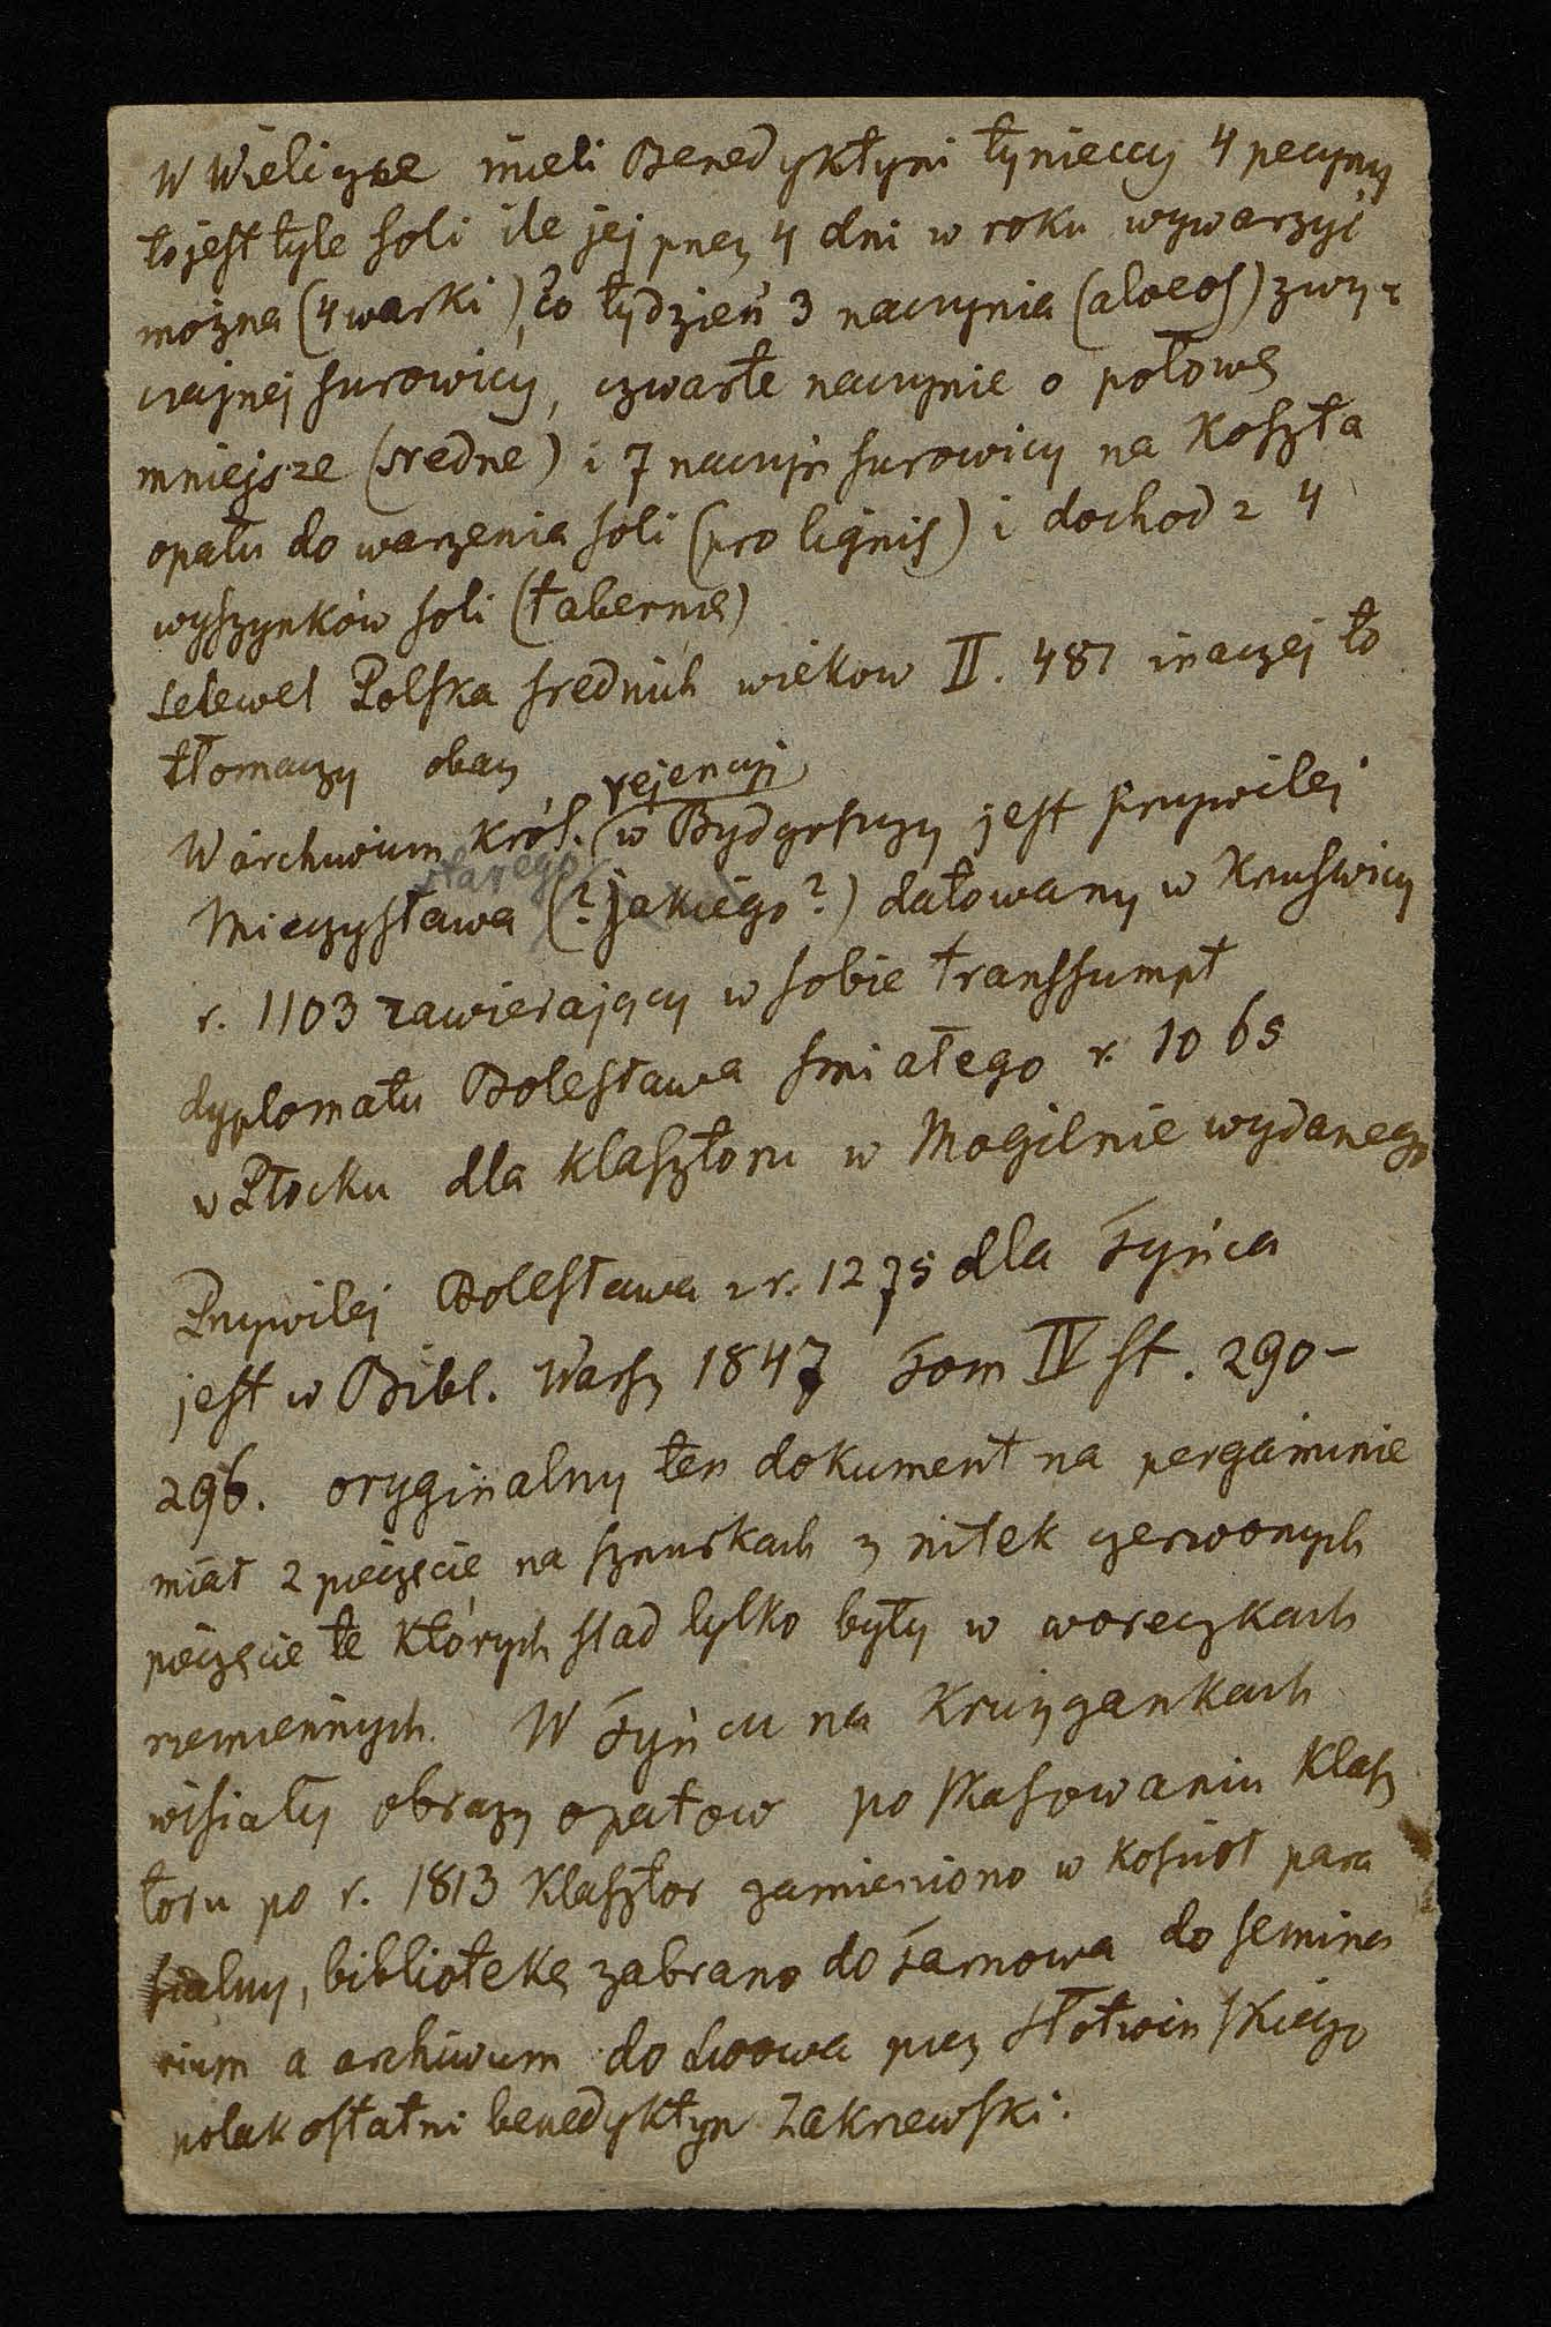 W Wieliczce mieli Benedyktyni tynieccy 4 peczyny
to jest tyle soli ile jej przez 4 dni w roku wywarzyć
można (4 warki), co tydzień 3 naczynia (alveos) zwy-
czajnej surowicy, czwarte naczynie o połowę
mniejsze (sredne) i 7 naczyń surowicy na koszta
opału do warzenia soli (pro lignis) i dochod z 4
wyszynków soli (tabernę)
Lelewel Polska srednich wiekow II. 487 inaczej to
tłomaczy obacz
W archiwium król. rejencyi w Bydgoszczy jest przywilej
Mieczysława starego (? jakiego?) datowany w Kruswicy
r. 1103 zawierający w sobie transsumpt
dyplomatu Bolesława smiałego r. 1065
w Płocku dla klasztoru w Mogilnie wydanego
Przywilej Bolesława z r. 1275 dla Tyńca
jest w Bibl. Warsz 1847 Tom IV st. 290-
296. oryginalny ten dokument na pergaminie
miał 2 pieczęcie na sznurkach z nitek czerwonych
pieczęcie te których slad tylko były w woreczkach
rzemiennych. W Tyńcu na Krużgankach
wisiały obrazy opatow po skasowaniu klasz
toru po r. 1813 Klasztor zamieniono w kościoł para
fialny, bibliotekę zabrano do Tarnowa do semina
rium a archiwum do Lwowa przez Słotwinskiego
polak ostatni benedyktyn Zakrzewski.